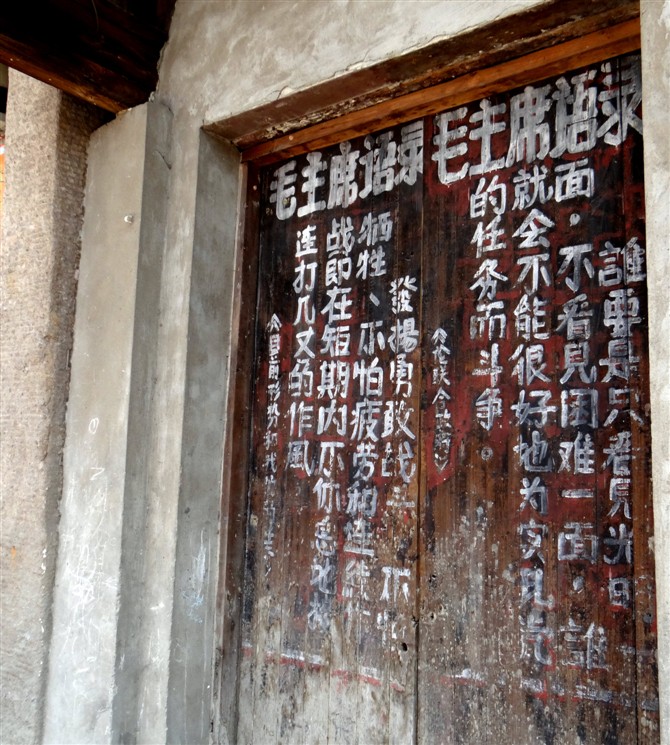 毛主席语录
誰要是只看見光明
面，不看見困难一面，誰
就会不能很好地为实現党
的任务而斗争。
《论联合政府》
毛主席语录
發揚勇敢战斗、不怕
牺牲、不怕疲劳和連续作
战即在短期内不休息地接
連打几仗的作風
《目前形势和我们的任务》